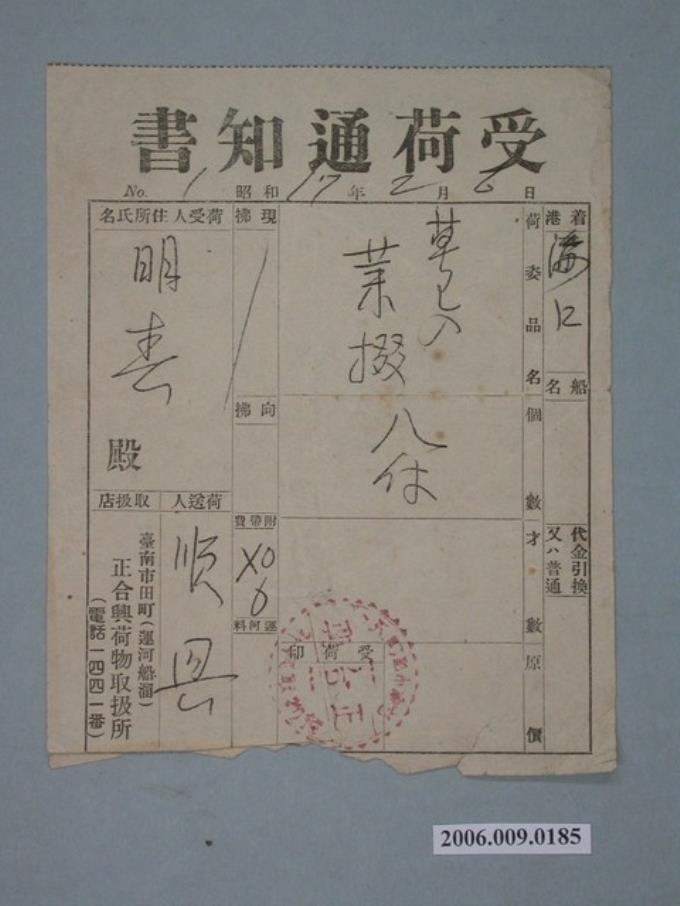 受荷通知書
No. 1 昭和 17 年 2 月 6 日
着港
海口
船名
代金引換
又ハ普通
荷委品名
個數
才數
原價
八件
現拂
向拂
附帶費
運河料
受荷印
荷受人住所氏名
明春
殿
荷送人
順興
取扱店
臺南市田町(運河船溜)
正合興荷物取扱所
(電話一四四一番)
2006.009.0185